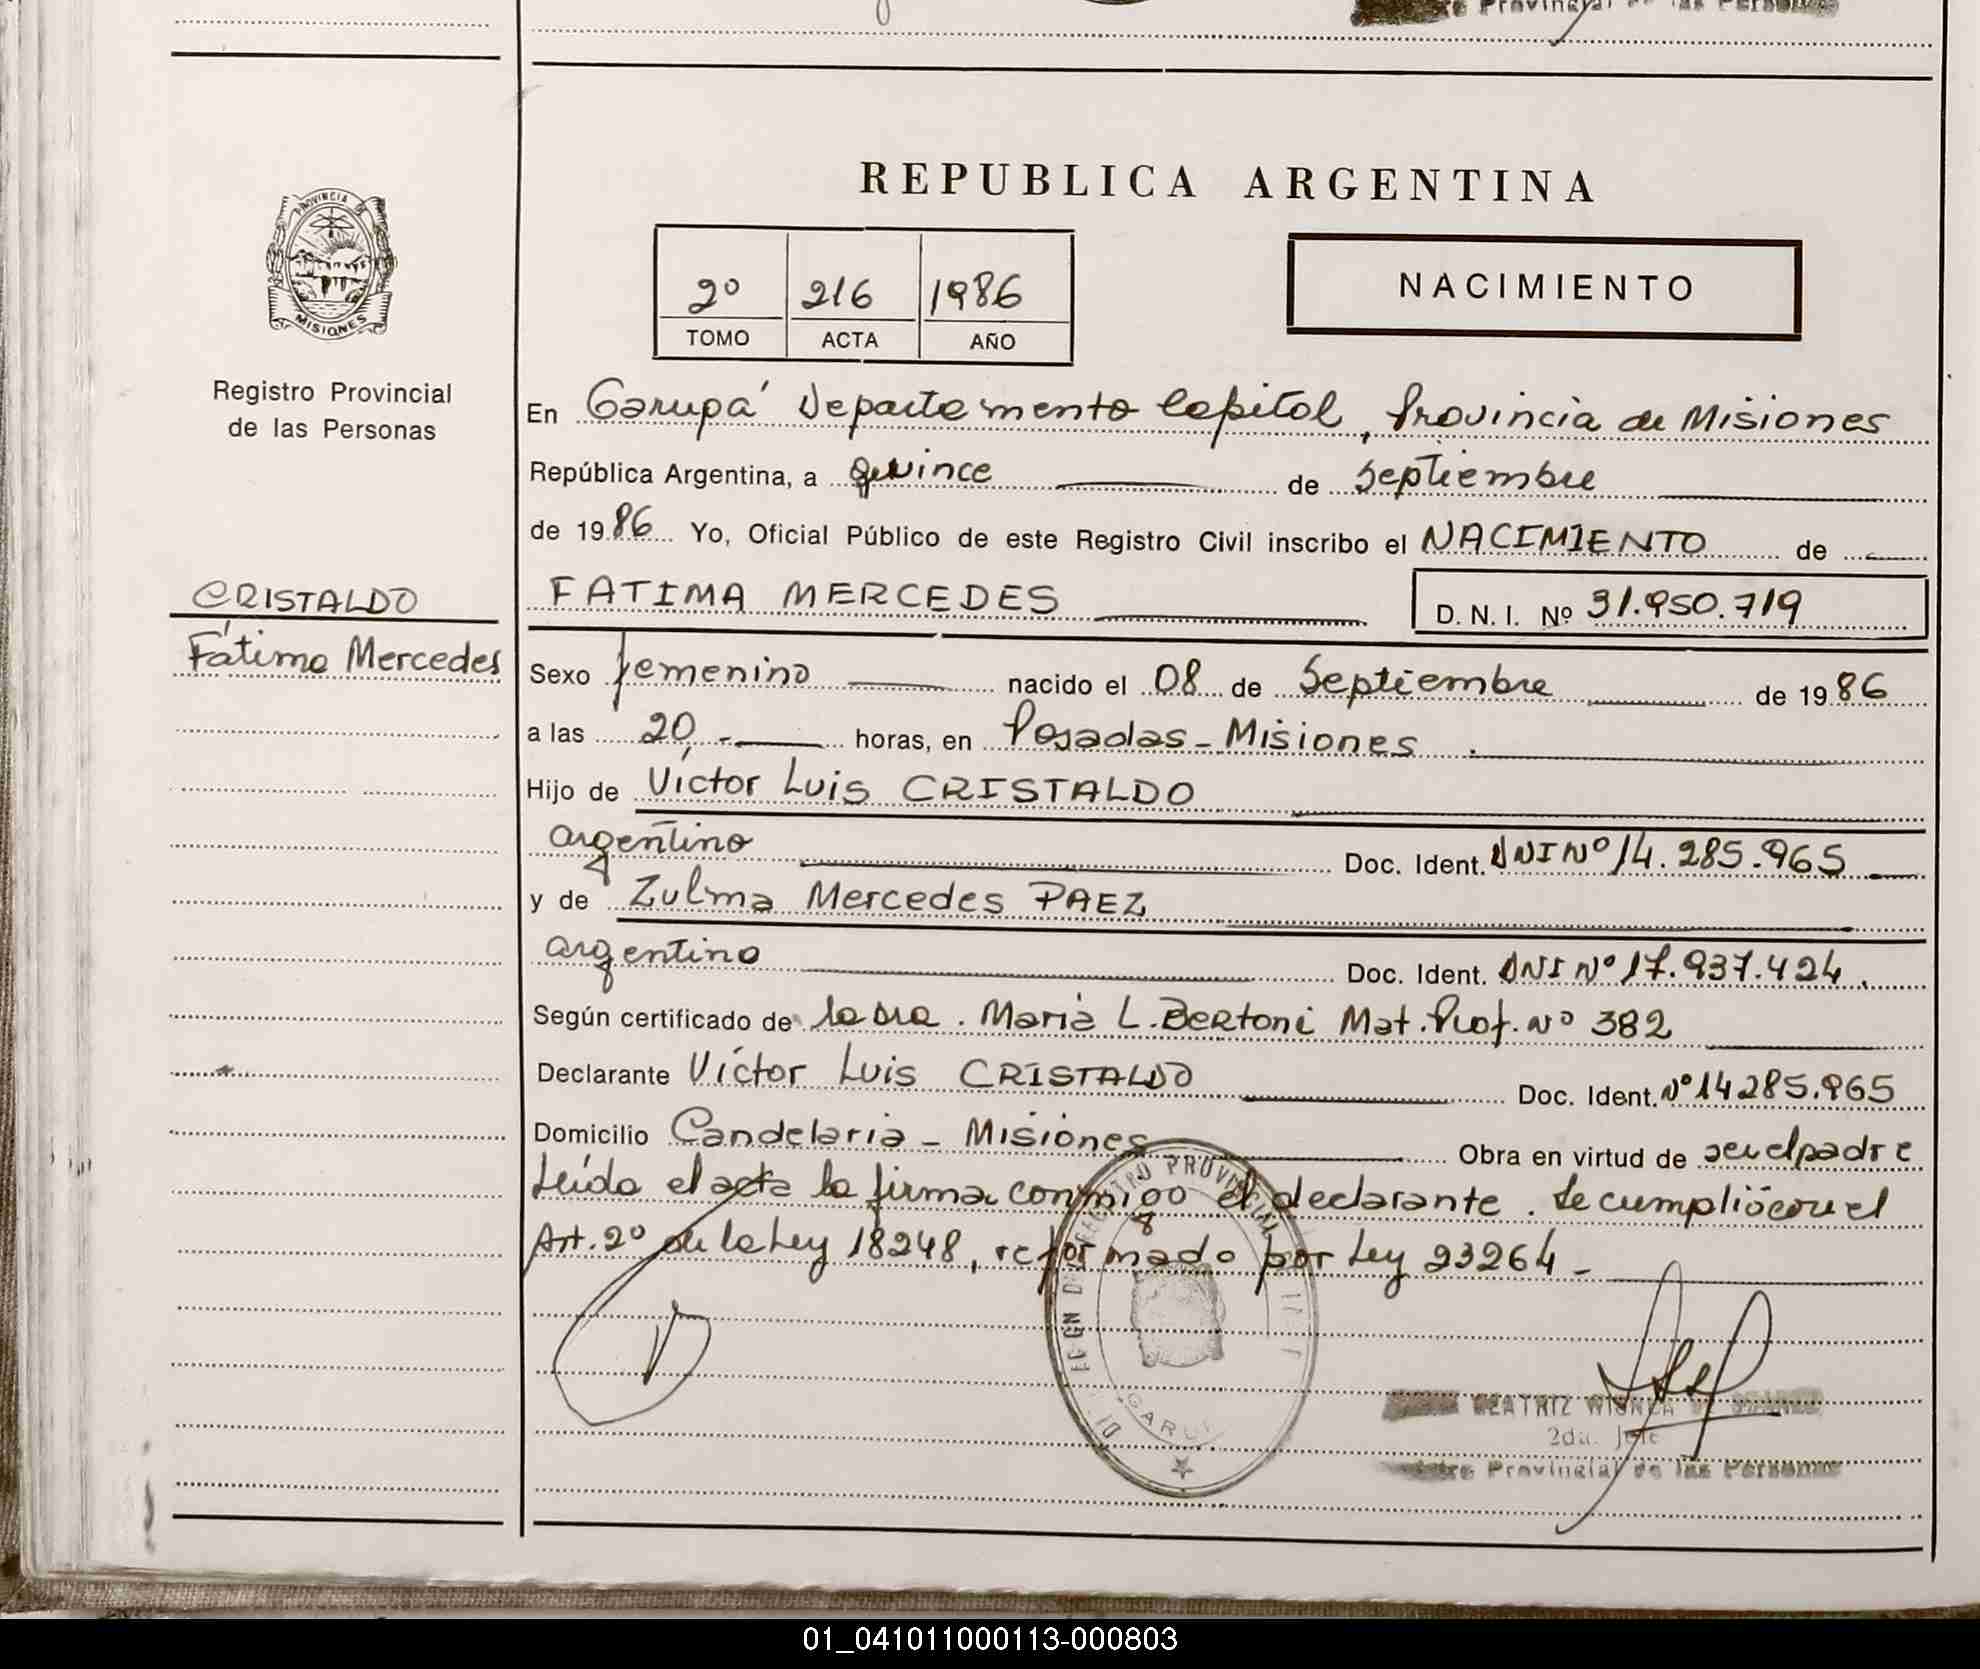 Provincial de las Personas
PROVINCIA DE
MISIONES
Registro Provincial
de las Personas
CRISTALDO
Fátima Mercedes
REPUBLICA ARGENTINA
2º 216 1986
TOMO ACTA AÑO
NACIMIENTO
En Garupá Departamento Capital, Provincia de Misiones
República Argentina, a quince de Septiembre
de 1986 Yo, Oficial Público de este Registro Civil inscribo el NACIMIENTO de
FATIMA MERCEDES D. N. I. Nº 31.950.719
Sexo femenino nacido el 08 de Septiembre de 1986
a las 20,- horas, en Posadas - Misiones .
Hijo de Víctor Luis CRISTALDO
argentino Doc. Ident. DNI Nº 14.285.965
y de Zulma Mercedes PAEZ
argentino Doc. Ident. DNI Nº 17.937.424.
Según certificado de la Dra. María L. Bertoni Mat. Prof. Nº 382
Declarante Víctor Luis CRISTALDO Doc. Ident. Nº 14285.965
Domicilio Candelaria - Misiones Obra en virtud de ser el padre
Leída el acta la firma conmigo el declarante. Se cumplió con el
Art. 2º de la Ley 18248, reformado por Ley 23264 -
REGISTRO PROVINCIAL
BEATRIZ
2da. Jefe
Provincial de las Personas
01_041011000113-000803